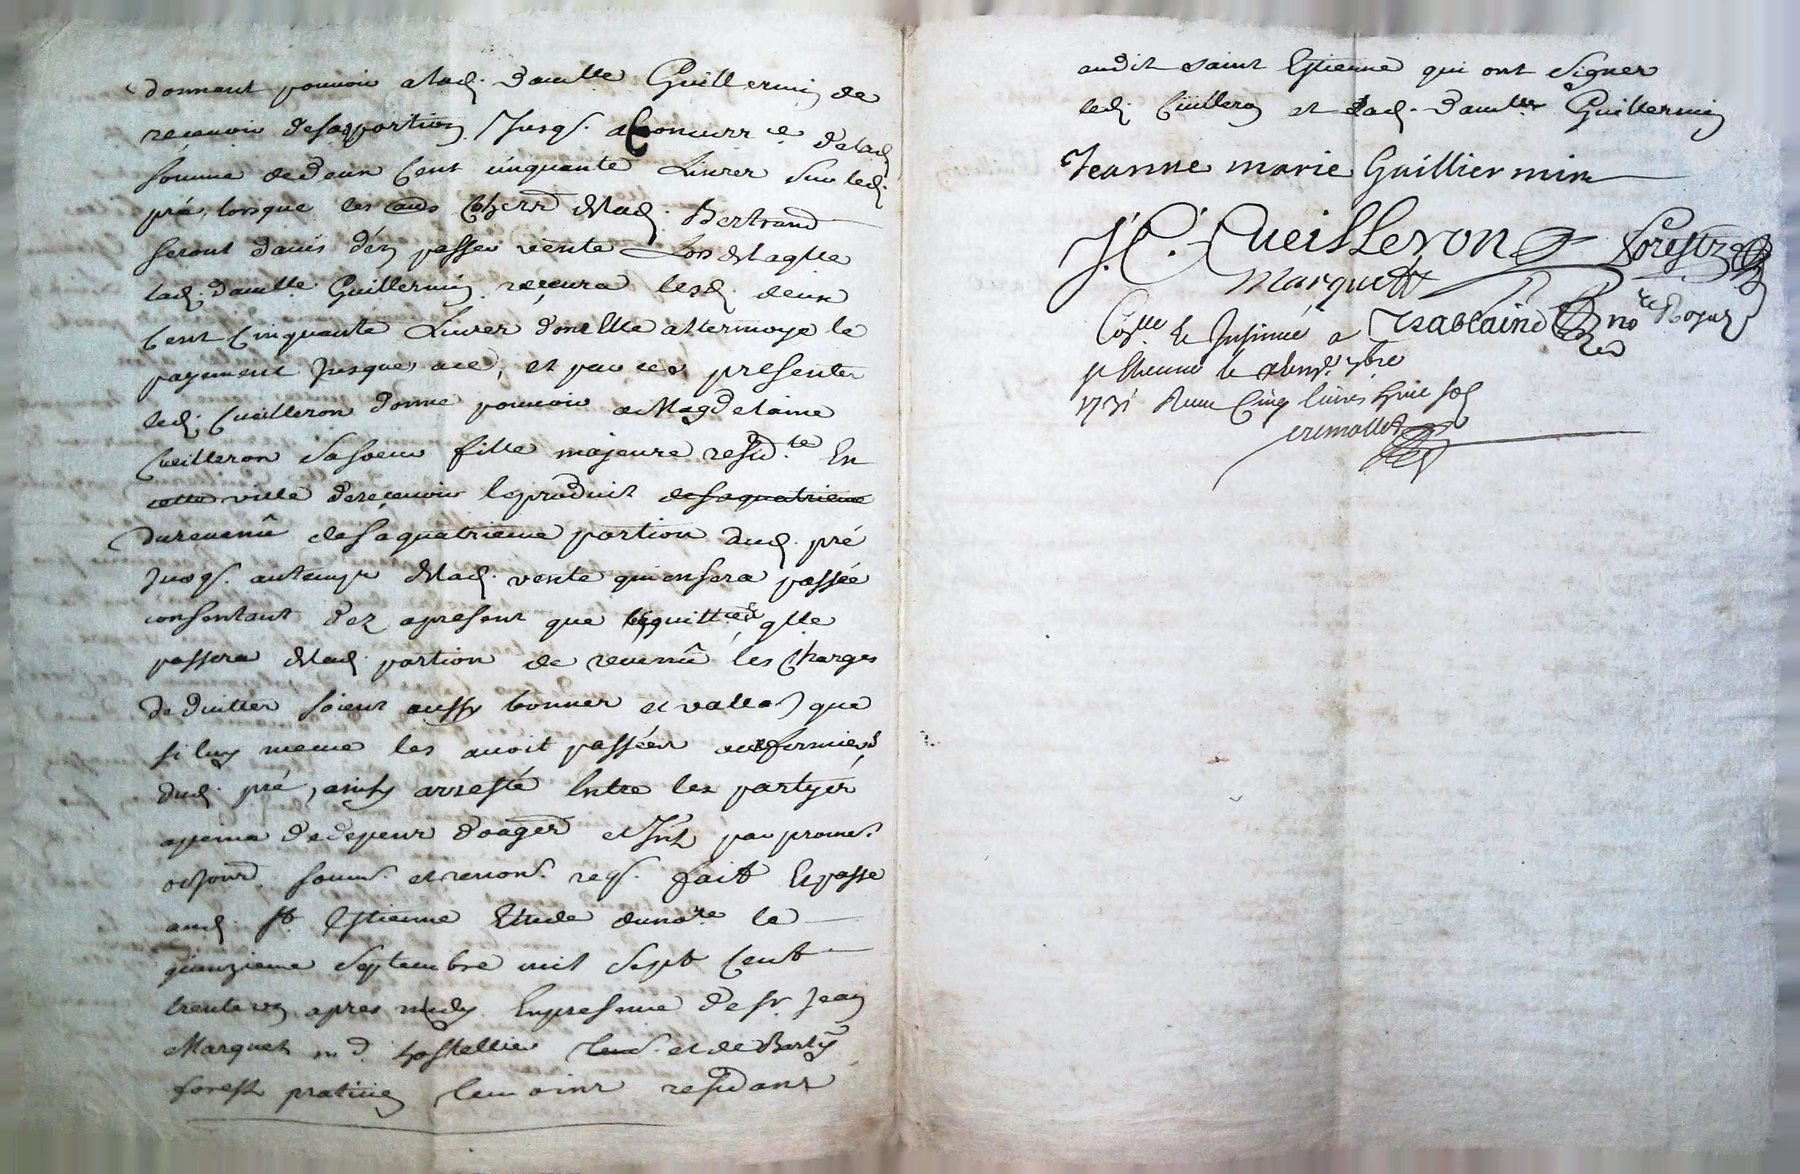 donnent pouvoir a lad. damlle Guillermin de
recevoir desa portion Jusq. a Concurrce delad.
somme de deux Cent cinquante Livres sur led.
pré, lorsque les Cherr delad. Bertrand
seront d'avis d'en passer vente Lors delaqlle
lad. damlle Guillermin recevra lesd. deux
Cent Cinquante Livres dont Elle attermoye le
payement Jusques a ce, et par ces presentes
led. Cueilleron donne pouvoir a Magdelaine
Cueilleron sa soeur fille majeure residte En
cette ville de recevoir le produit de sa quatrieme
du revenû de sa quatrieme portion dud. pré
Jusq. au temps delad. vente qui en sera passée
consentant dez apresent que les quittces qlle
passera delad. portion de revenû les Charges
deduittes soient aussy bonnes et vallab que
si luy meme les avoit passées aux fermiers
dud. pré, ainsy arresté Entre les partyes
apeine de depens domger et Jnt par promes.
 soum. et renon. req. fait Et passé
aud. St. Estienne Etude du nore le
quinzieme Septembre mil Sept Cent
trente un apres midy En presence de sr. Jean
Marquet md. hostellier et de Barty
forest praticien temoins residants
audit saint Estienne qui ont signer
led. Cuilleron et lad. damlle Guillermin
Jeanne marie Guilliermin
J. C. Cueilleron forest
Marquett
Cōlle & Insinué a Tsablaine nore Royal
St Etienne le 7bre
1731 Receu Cinq livres huit sols
cremollet